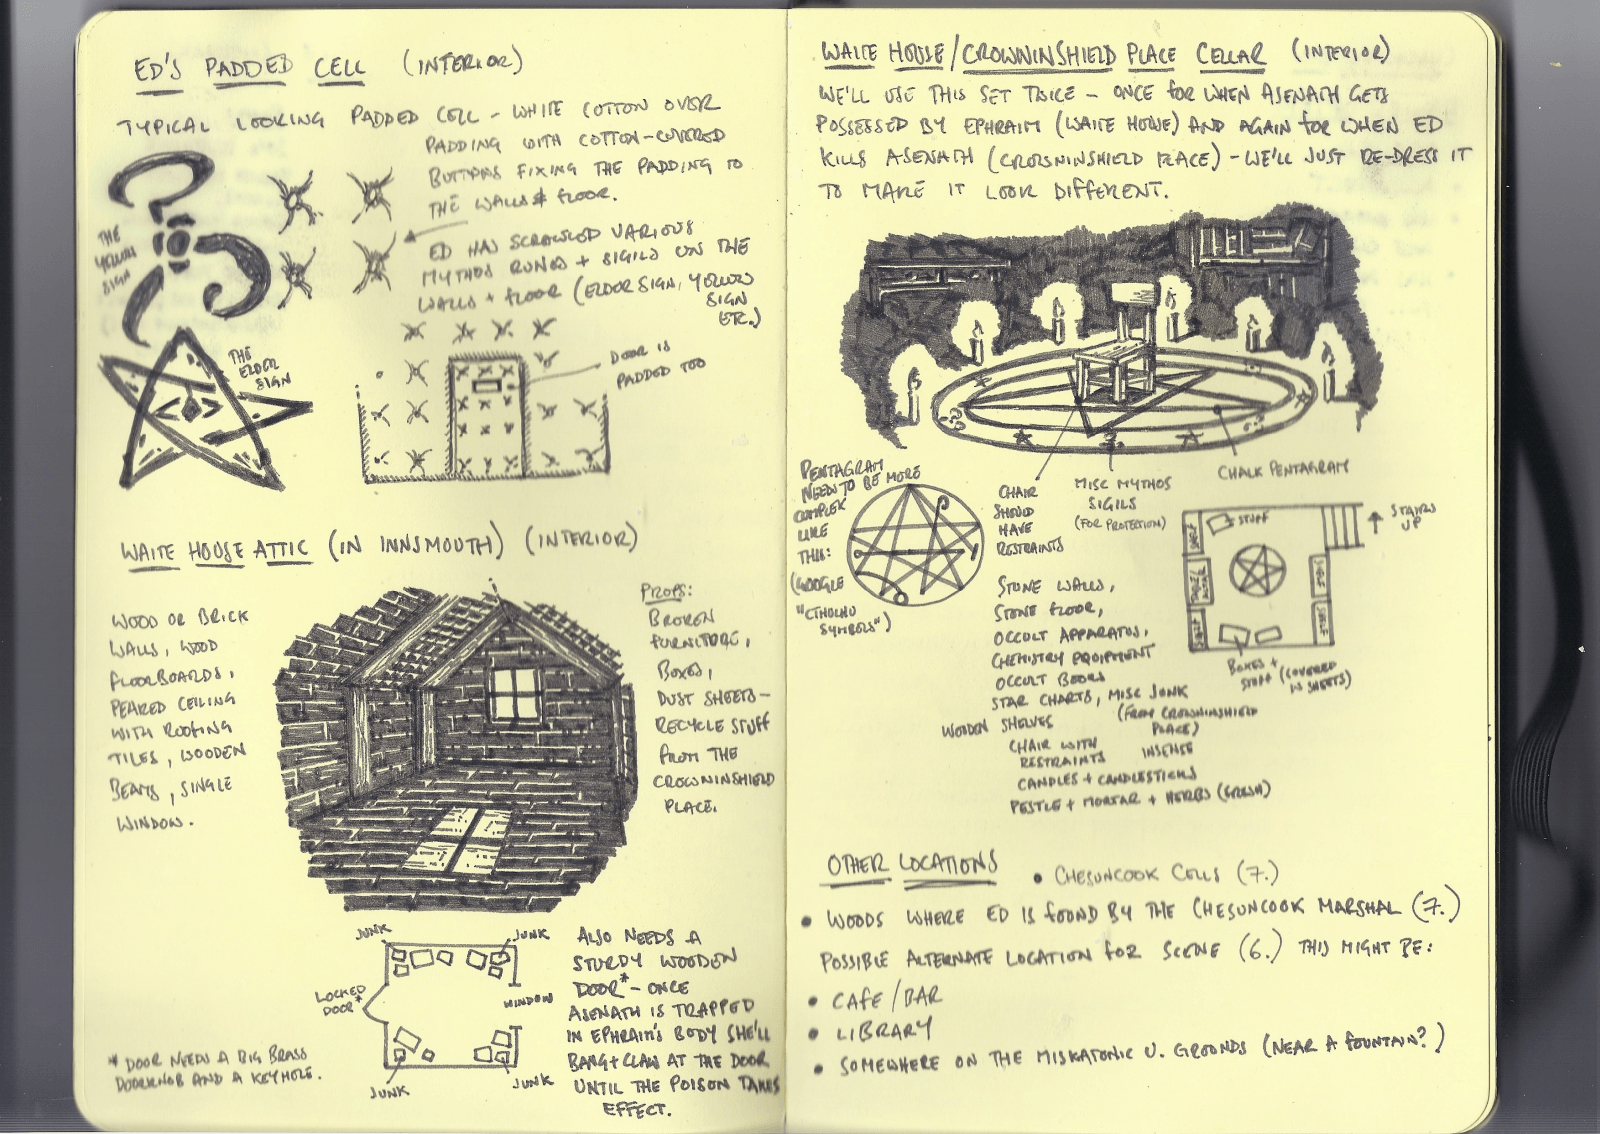 ED'S PADDED CELL (INTERIOR)
TYPICAL LOOKING PADDED CELL - WHITE COTTON OVER
PADDING WITH COTTON-COVERED
BUTTONS FIXING THE PADDING TO
THE WALLS & FLOOR.
ED HAS SCRAWLED VARIOUS
MYTHOS RUNES + SIGILS ON THE
WALLS + FLOOR (ELDER SIGN, YELLOW
SIGN
ETC.)
THE
YELLOW
SIGN
THE
ELDER
SIGN
DOOR IS
PADDED TOO
WAITE HOUSE ATTIC (IN INNSMOUTH) (INTERIOR)
WOOD OR BRICK
WALLS, WOOD
FLOORBOARDS,
PEAKED CEILING
WITH ROOFING
TILES, WOODEN
BEAMS, SINGLE
WINDOW.
PROPS:
BROKEN
FURNITURE,
BOXES,
DUST SHEETS -
RECYCLE STUFF
FROM THE
CROWNINSHIELD
PLACE.
JUNK
JUNK
LOCKED
DOOR*
WINDOW
JUNK
JUNK
* DOOR NEEDS A BIG BRASS
DOORKNOB AND A KEYHOLE.
ALSO NEEDS A
STURDY WOODEN
DOOR* - ONCE
ASENATH IS TRAPPED
IN EPHRAIM'S BODY SHE'LL
BANG + CLAW AT THE DOOR
UNTIL THE POISON TAKES
EFFECT.
WAITE HOUSE/CROWNINSHIELD PLACE CELLAR (INTERIOR)
WE'LL USE THIS SET TWICE - ONCE FOR WHEN ASENATH GETS
POSSESSED BY EPHRAIM (WAITE HOUSE) AND AGAIN FOR WHEN ED
KILLS ASENATH (CROWNINSHIELD PLACE) - WE'LL JUST RE-DRESS IT
TO MAKE IT LOOK DIFFERENT.
PENTAGRAM
NEEDS TO BE MORE
COMPLEX
LIKE
THIS:
(GOOGLE
"CTHULHU
SYMBOLS")
CHAIR
SHOULD
HAVE
RESTRAINTS
MISC MYTHOS
SIGILS
(FOR PROTECTION)
CHALK PENTAGRAM
STUFF
STAIRS
UP
SHELF
SHELF
SHELF
SHELF
BOXES +
STUFF (COVERED
IN SHEETS)
STONE WALLS,
STONE FLOOR,
OCCULT APPARATUS,
CHEMISTRY EQUIPMENT
OCCULT BOOKS
STAR CHARTS, MISC JUNK
(FROM CROWNINSHIELD
PLACE)
WOODEN SHELVES
CHAIR WITH
RESTRAINTS
INSENSE
CANDLES + CANDLESTICKS
PESTLE + MORTAR + HERBS (FRESH)
OTHER LOCATIONS
• CHESUNCOOK CELLS (7.)
• WOODS WHERE ED IS FOUND BY THE CHESUNCOOK MARSHAL (7.)
POSSIBLE ALTERNATE LOCATION FOR SCENE (6.) THIS MIGHT BE:
• CAFE/BAR
• LIBRARY
• SOMEWHERE ON THE MISKATONIC U. GROUNDS (NEAR A FOUNTAIN?)